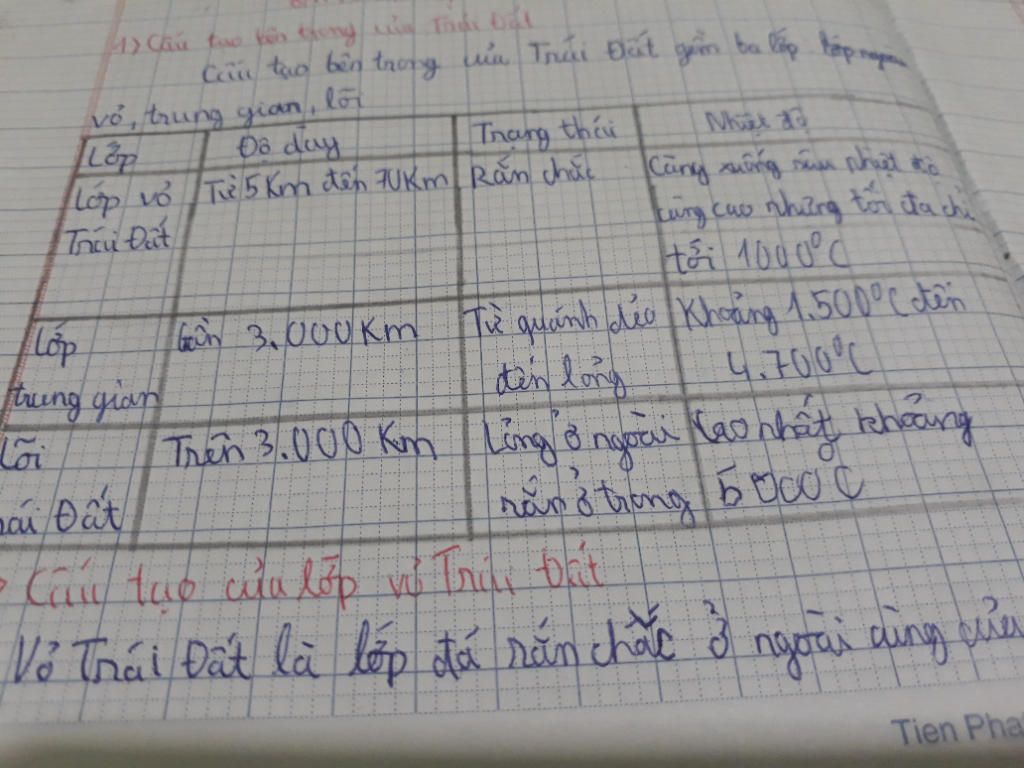 1) Cấu tạo bên trong của Trái Đất
Cấu tạo bên trong của Trái Đất gồm ba lớp
vỏ, trung gian, lõi
Lớp
Độ dày
Trạng thái
Nhiệt độ
Lớp vỏ
Trái Đất
Từ 5 Km đến 70 Km
Rắn chắc
Càng xuống sâu nhiệt độ
càng cao nhưng tối đa chỉ
tới 1000°C
Lớp
trung gian
Gần 3.000 Km
Từ quánh dẻo
đến lỏng
Khoảng 1.500°C đến
4.700°C
Lõi
Đất
Trên 3.000 Km
Lỏng ở ngoài
rắn ở trong
Cao nhất khoảng
5000C
Cấu tạo của lớp vỏ Trái Đất
Vỏ Trái Đất là lớp đá rắn chắc ở ngoài cùng của
Tien Pha